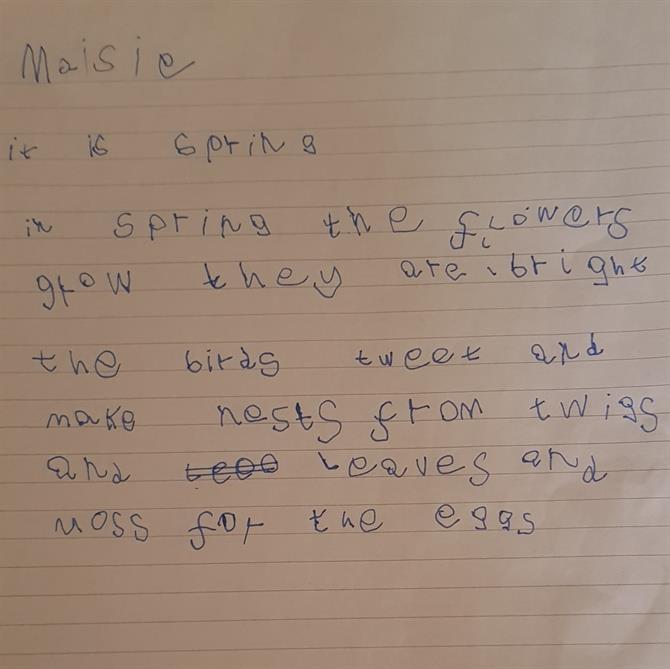 Maisie
it is spring
in spring the flowers
grow they are bright
the birds tweet and
make nests from twigs
and leaves and
moss for the eggs